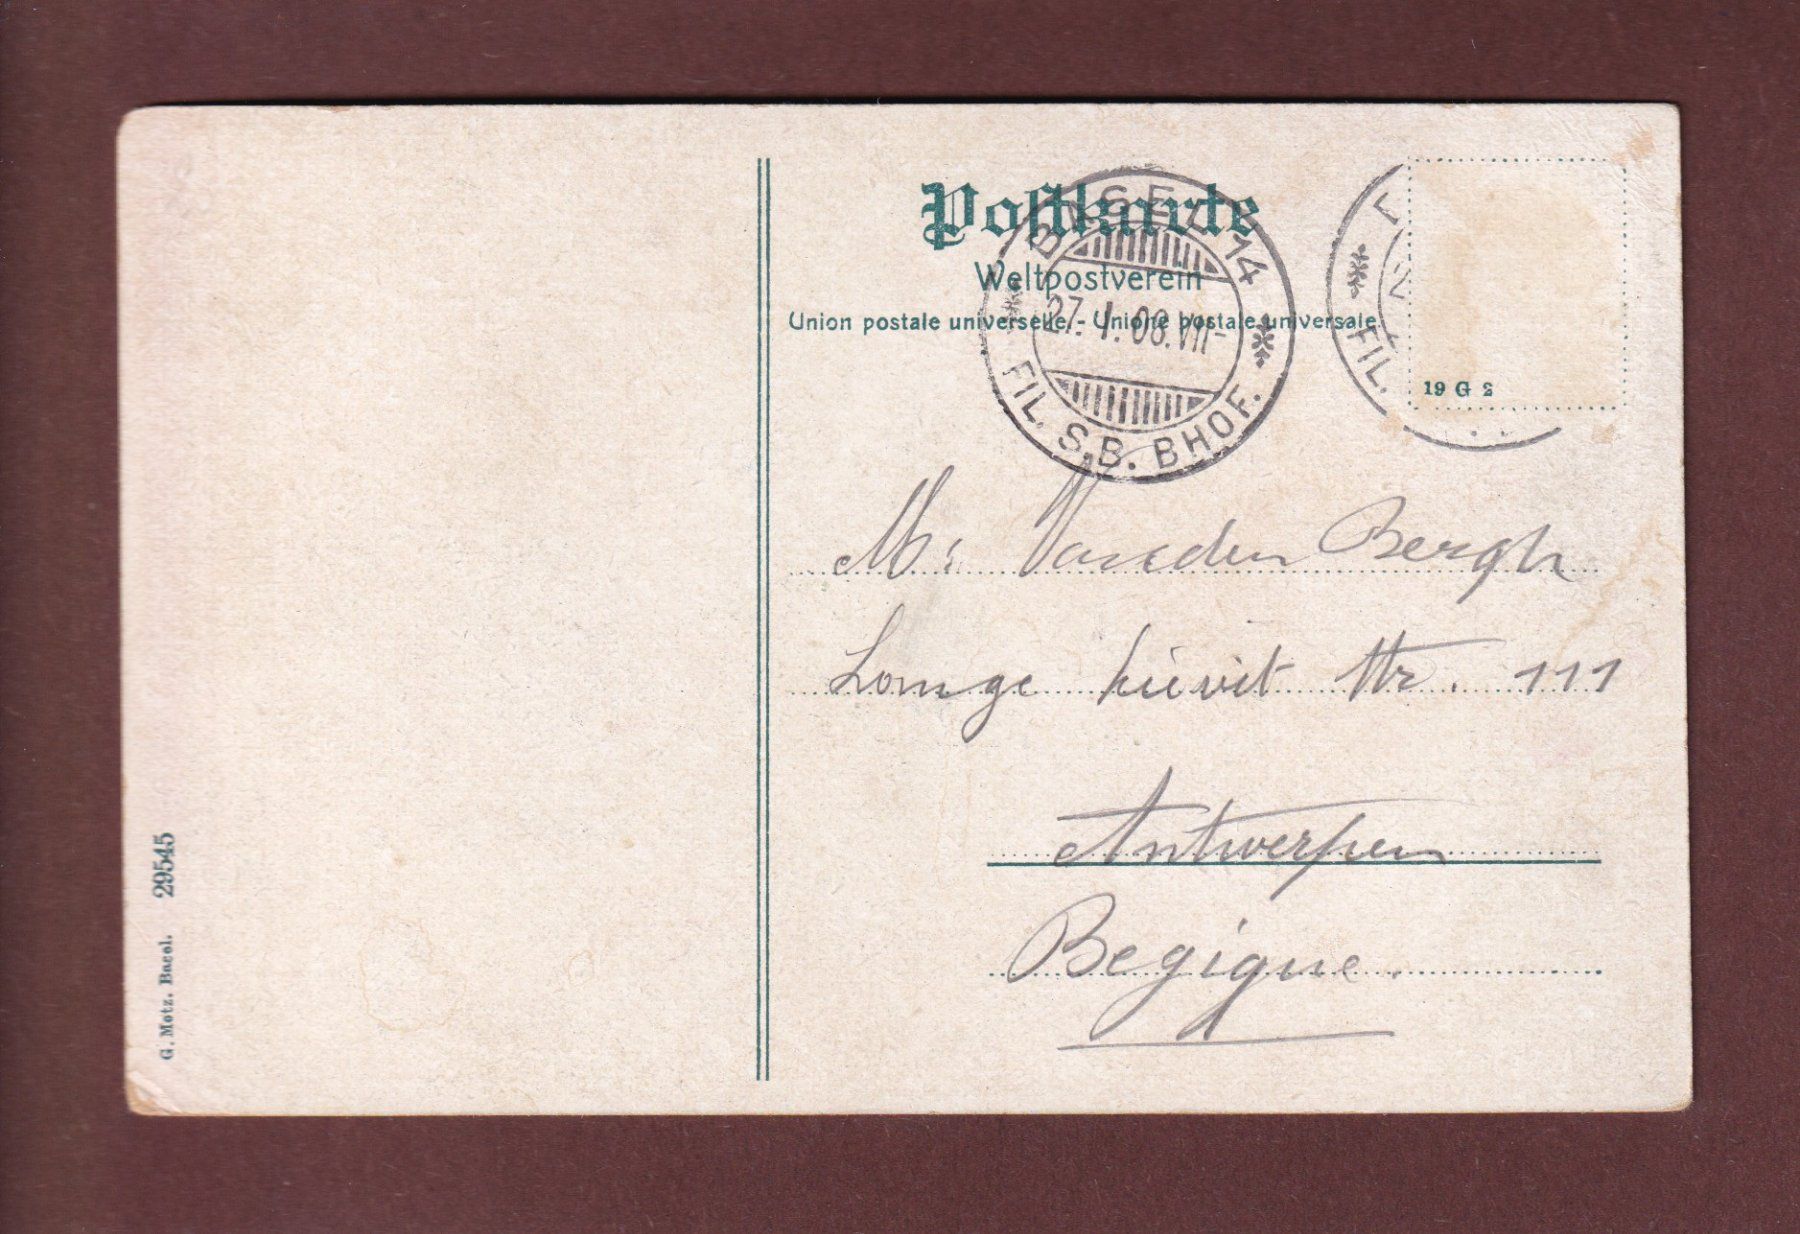 Postkarte
Weltpostverein
Union postale universelle - Unione postale universale
BASEL 14
27. I. 08. VII-
FIL. S.B. BHOF.
FIL.
19 G 2
Mr Vanden Bergh
Lange kievit str. 111
Antwerpen
Begique.
G. Metz. Basel. 29545